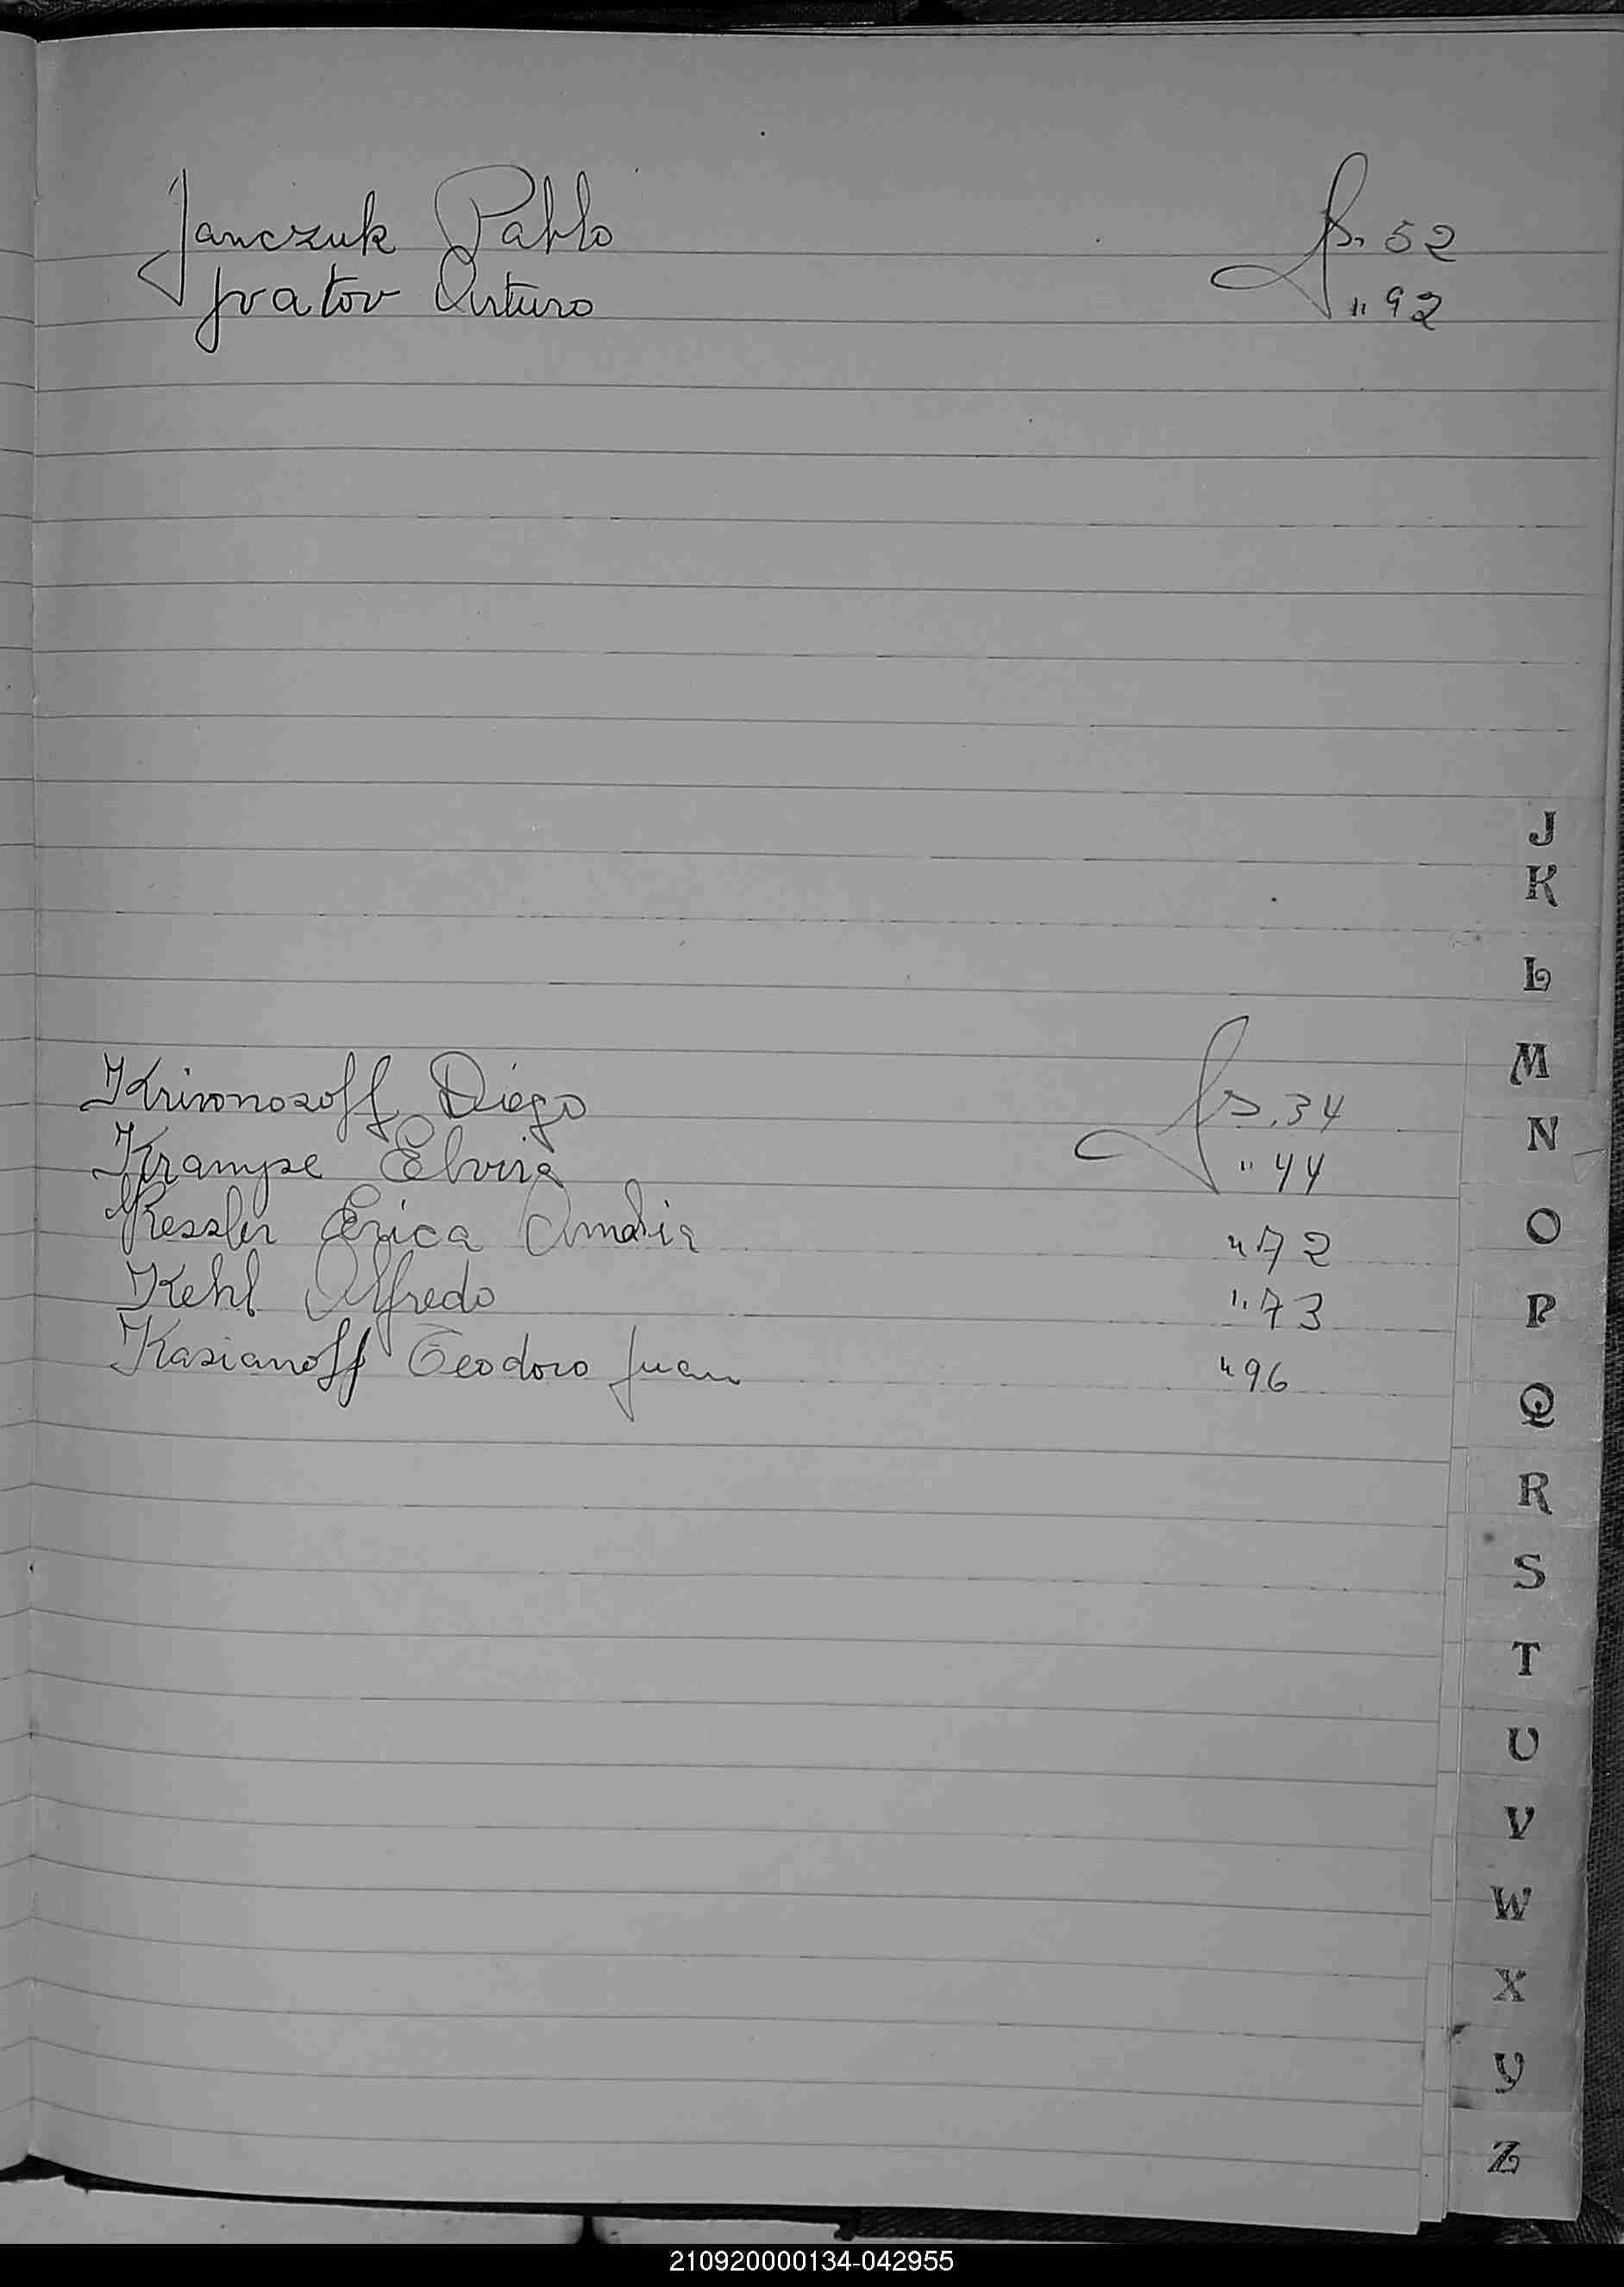 Janczuk Pablo fs. 52
Jvatov Arturo " 92
J
K
L
Krivonosoff Diego fs. 34
M
Krampe Elvira " 44
N
Kessler Erica Amalia " 72
O
Kehl Alfredo " 73
P
Kasianoff Teodoro Juan " 96
Q
R
S
T
U
V
W
X
Y
Z
210920000134-042955